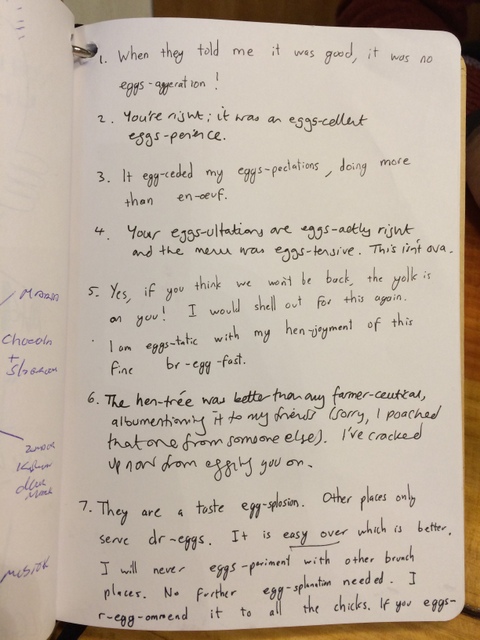 1. When they told me it was good, it was no
eggs-aggeration!
2. You're right; it was an eggs-cellent
eggs-perience.
3. It egg-ceded my eggs-pectations, doing more
than en-oeuf.
4. Your eggs-ultations are eggs-actly right
and the menu was eggs-tensive. This isn't ova.
5. Yes, if you think we won't be back, the yolk is
on you! I would shell out for this again.
I am eggs-tatic with my hen-joyment of this
fine br-egg-fast.
6. The hen-trée was better than any farmer-ceutical,
albumentioning it to my friends (sorry, I poached
that one from someone else). I've cracked
up now from egging you on.
7. They are a taste egg-splosion. Other places only
serve dr-eggs. It is easy over which is better.
I will never eggs-periment with other brunch
places. No further egg-splanation needed. I
r-egg-ommend it to all the chicks. If you eggs-